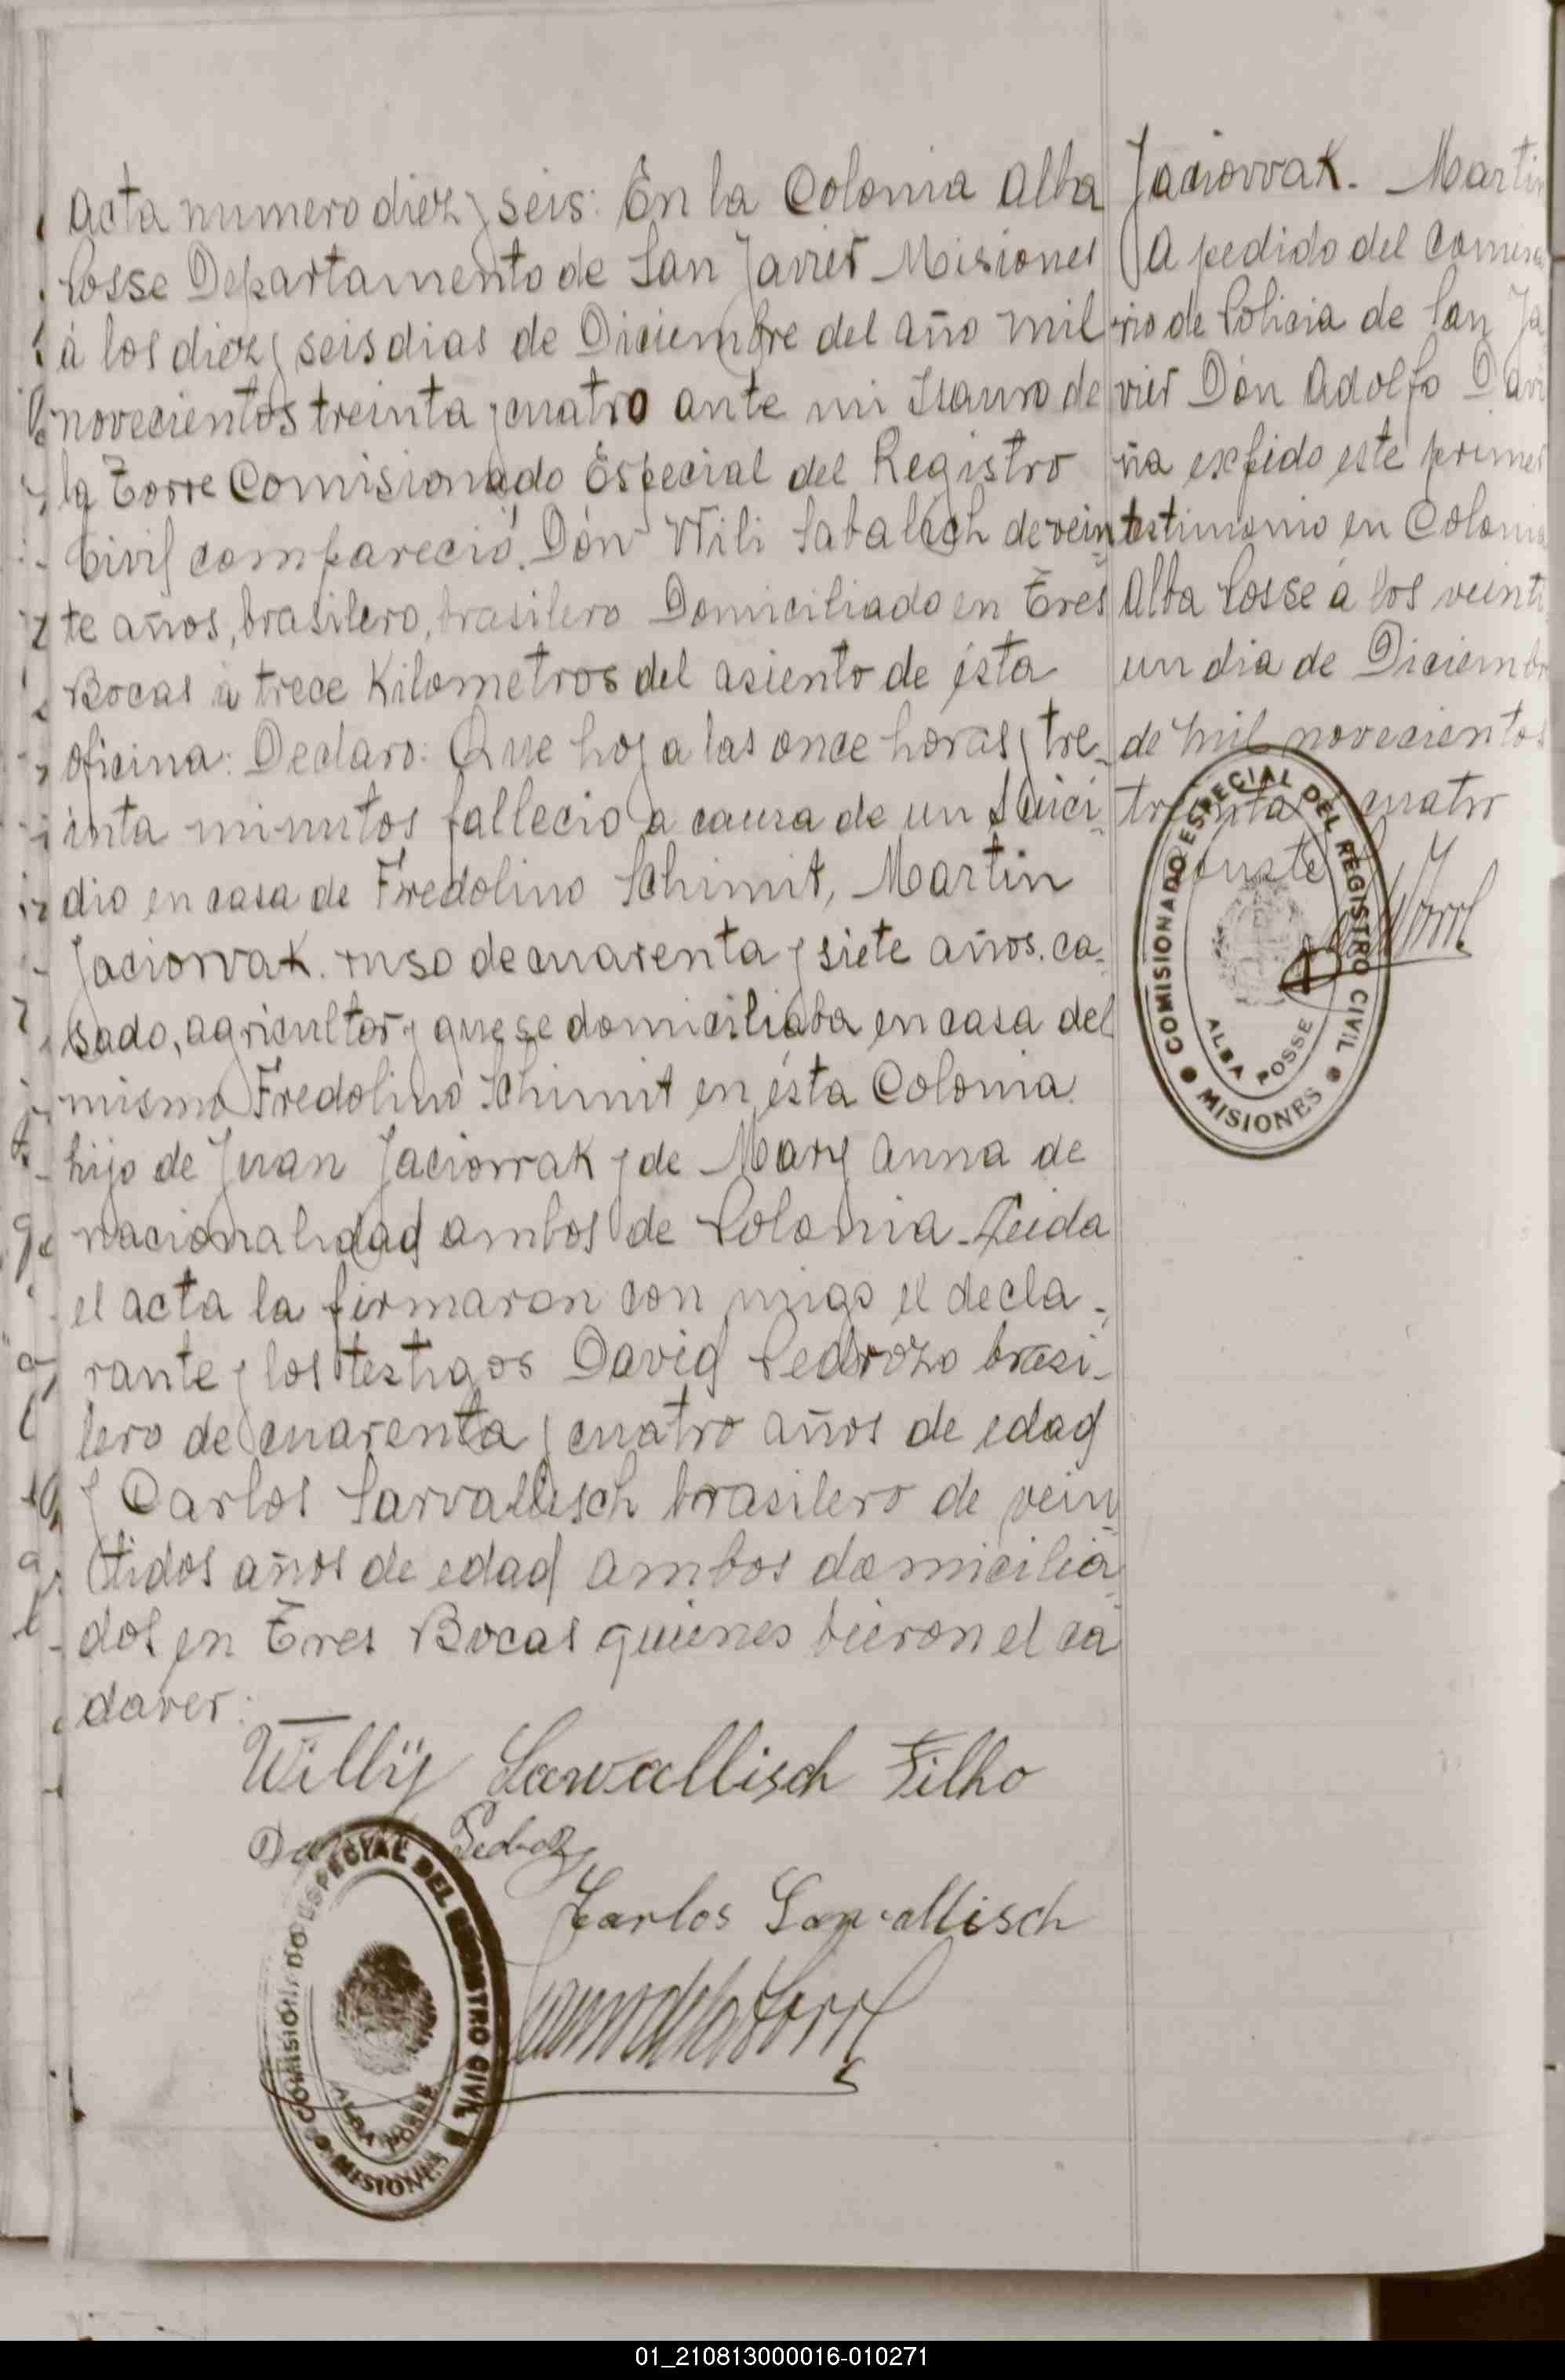 Acta numero diez y seis: En la Colonia Alba
Posse Departamento de San Javier Misiones
á los diez y seis dias de Diciembre del año mil
novecientos treinta y cuatro ante mi Isauro de
la Torre Comisionado Especial del Registro
Civil compareció. Dón Wili Sabalich de vein
te años, brasilero, brasilero Domiciliado en Tres
Bocas á trece Kilometros del asiento de ésta
oficina: Declaro: Que hoy a las once horas y tre-
inta minutos fallecio a causa de un Suici-
dio en casa de Fredolino Schimit, Martin
Jaciorvak. ruso de cuarenta y siete años. ca-
sado, agricultor y que se domiciliaba en casa del
mismo Fredolino Schimit en ésta Colonia.
hijo de Juan Jaciorrak y de Mary Anna de
nacionalidad ambos de Polonia. Leida
el acta la firmaron con migo el decla-
rante y los testigos David Pedrozo brasi-
lero de cuarenta y cuatro años de edad
y Carlos Sarvallisch brasilero de vein
tidos años de edad ambos domicilia
dos en Tres Bocas quienes bieron el ca
daver:
Willÿ Sawallisch Filho
Pedroz
Carlos Sawallisch
Isauro de la Torre
COMISIONADO ESPECIAL DEL REGISTRO CIVIL
ALBA POSSE
MISIONES
Jaciorvak. Martin
A pedido del Comisa
rio de Policia de San Ja
vier Dón Adolfo Davi
ña expido este primer
testimonio en Colonia
Alba Posse á los veinti
un dia de Diciembre
de mil novecientos
treinta y cuatro
Conste
COMISIONADO ESPECIAL DEL REGISTRO CIVIL
ALBA POSSE
MISIONES
01_210813000016-010271